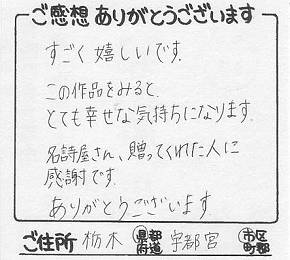 ご感想 ありがとうございます
すごく嬉しいです.
この作品をみると、
とても幸せな気持ちになります.
名詩屋さん、贈ってくれた人に
感謝です.
ありがとうございます
ご住所 栃木 都道府県 宇都宮 市区町郡